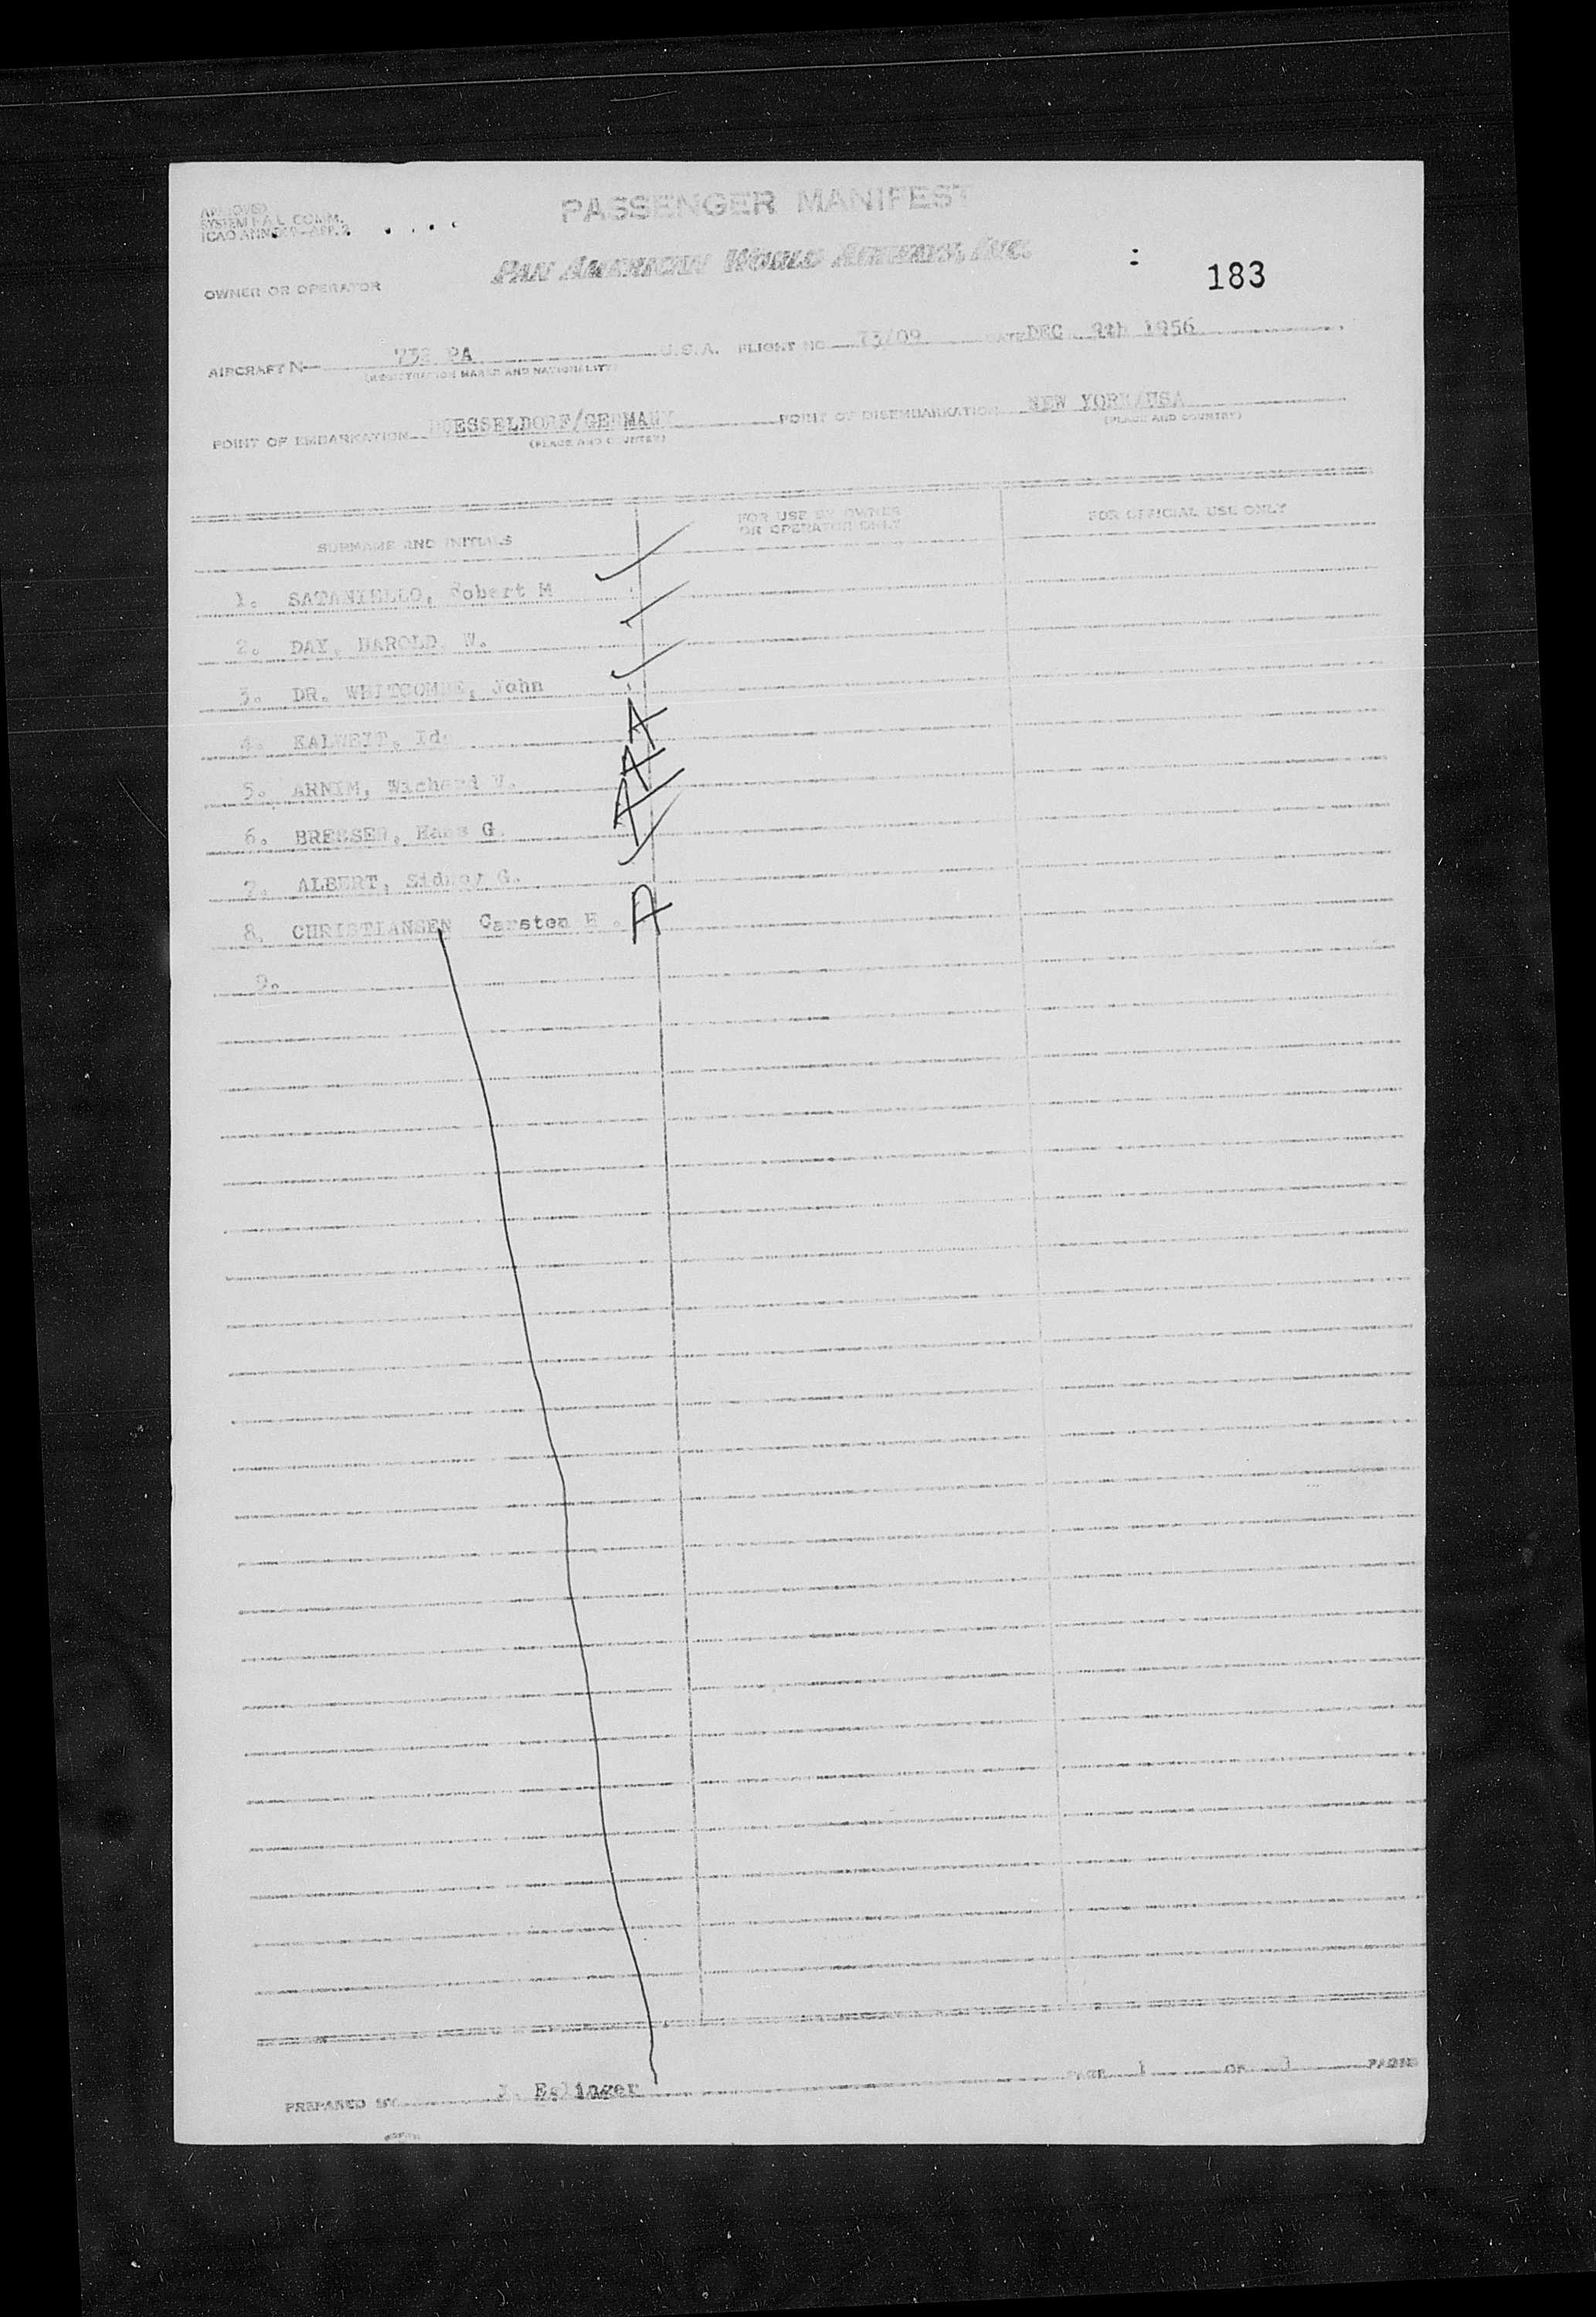 PASSENGER MANIFEST
APPROVED
SYSTEM F.A.L. COMM.
ICAO ANN. - APP. 2
PAN AMERICAN WORLD AIRWAYS, INC.
183
OWNER OR OPERATOR
AIRCRAFT N— PA U.S.A. FLIGHT NO. 73/09 DATE DEC 9th 1956
(REGISTRATION MARKS AND NATIONALITY)
POINT OF EMBARKATION DUESSELDORF/GERMANY POINT OF DISEMBARKATION NEW YORK/USA
(PLACE AND COUNTRY) (PLACE AND COUNTRY)
SURNAME AND INITIALS FOR USE BY OWNER OR OPERATOR ONLY FOR OFFICIAL USE ONLY
1. SATANIELLO, Robert M
2. DAY, HAROLD W.
3. DR. WHITCOMBE, John
4. KALWEIT, Ida A
5. ARNIM, Wichard V. A
6. BRESSER, Hans G. A
7. ALBERT, Sidney G.
8. CHRISTIANSEN Carsten H. A
9.
PREPARED BY Eslinger PAGE 1 OF 1 PAGES